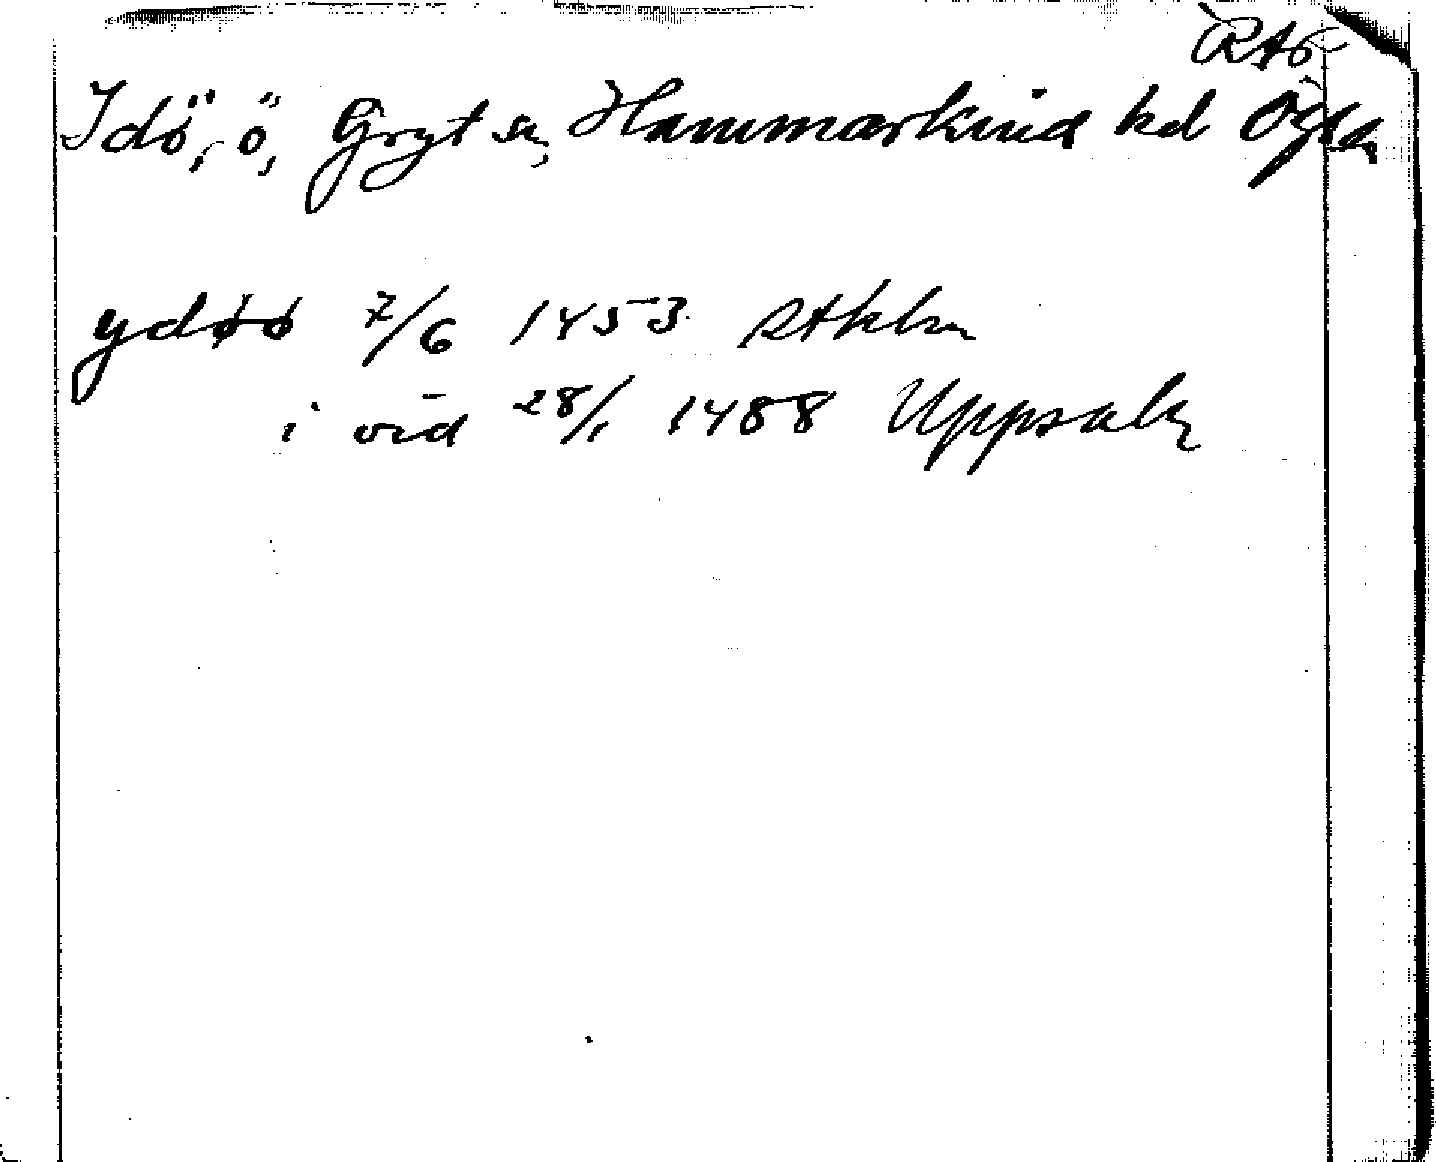 RA6
Idö, ö, Gryt sn, Hammarkind hd Ögld
ydøø 7/6 1453 Sthlm
i vid 28/1 1488 Uppsala